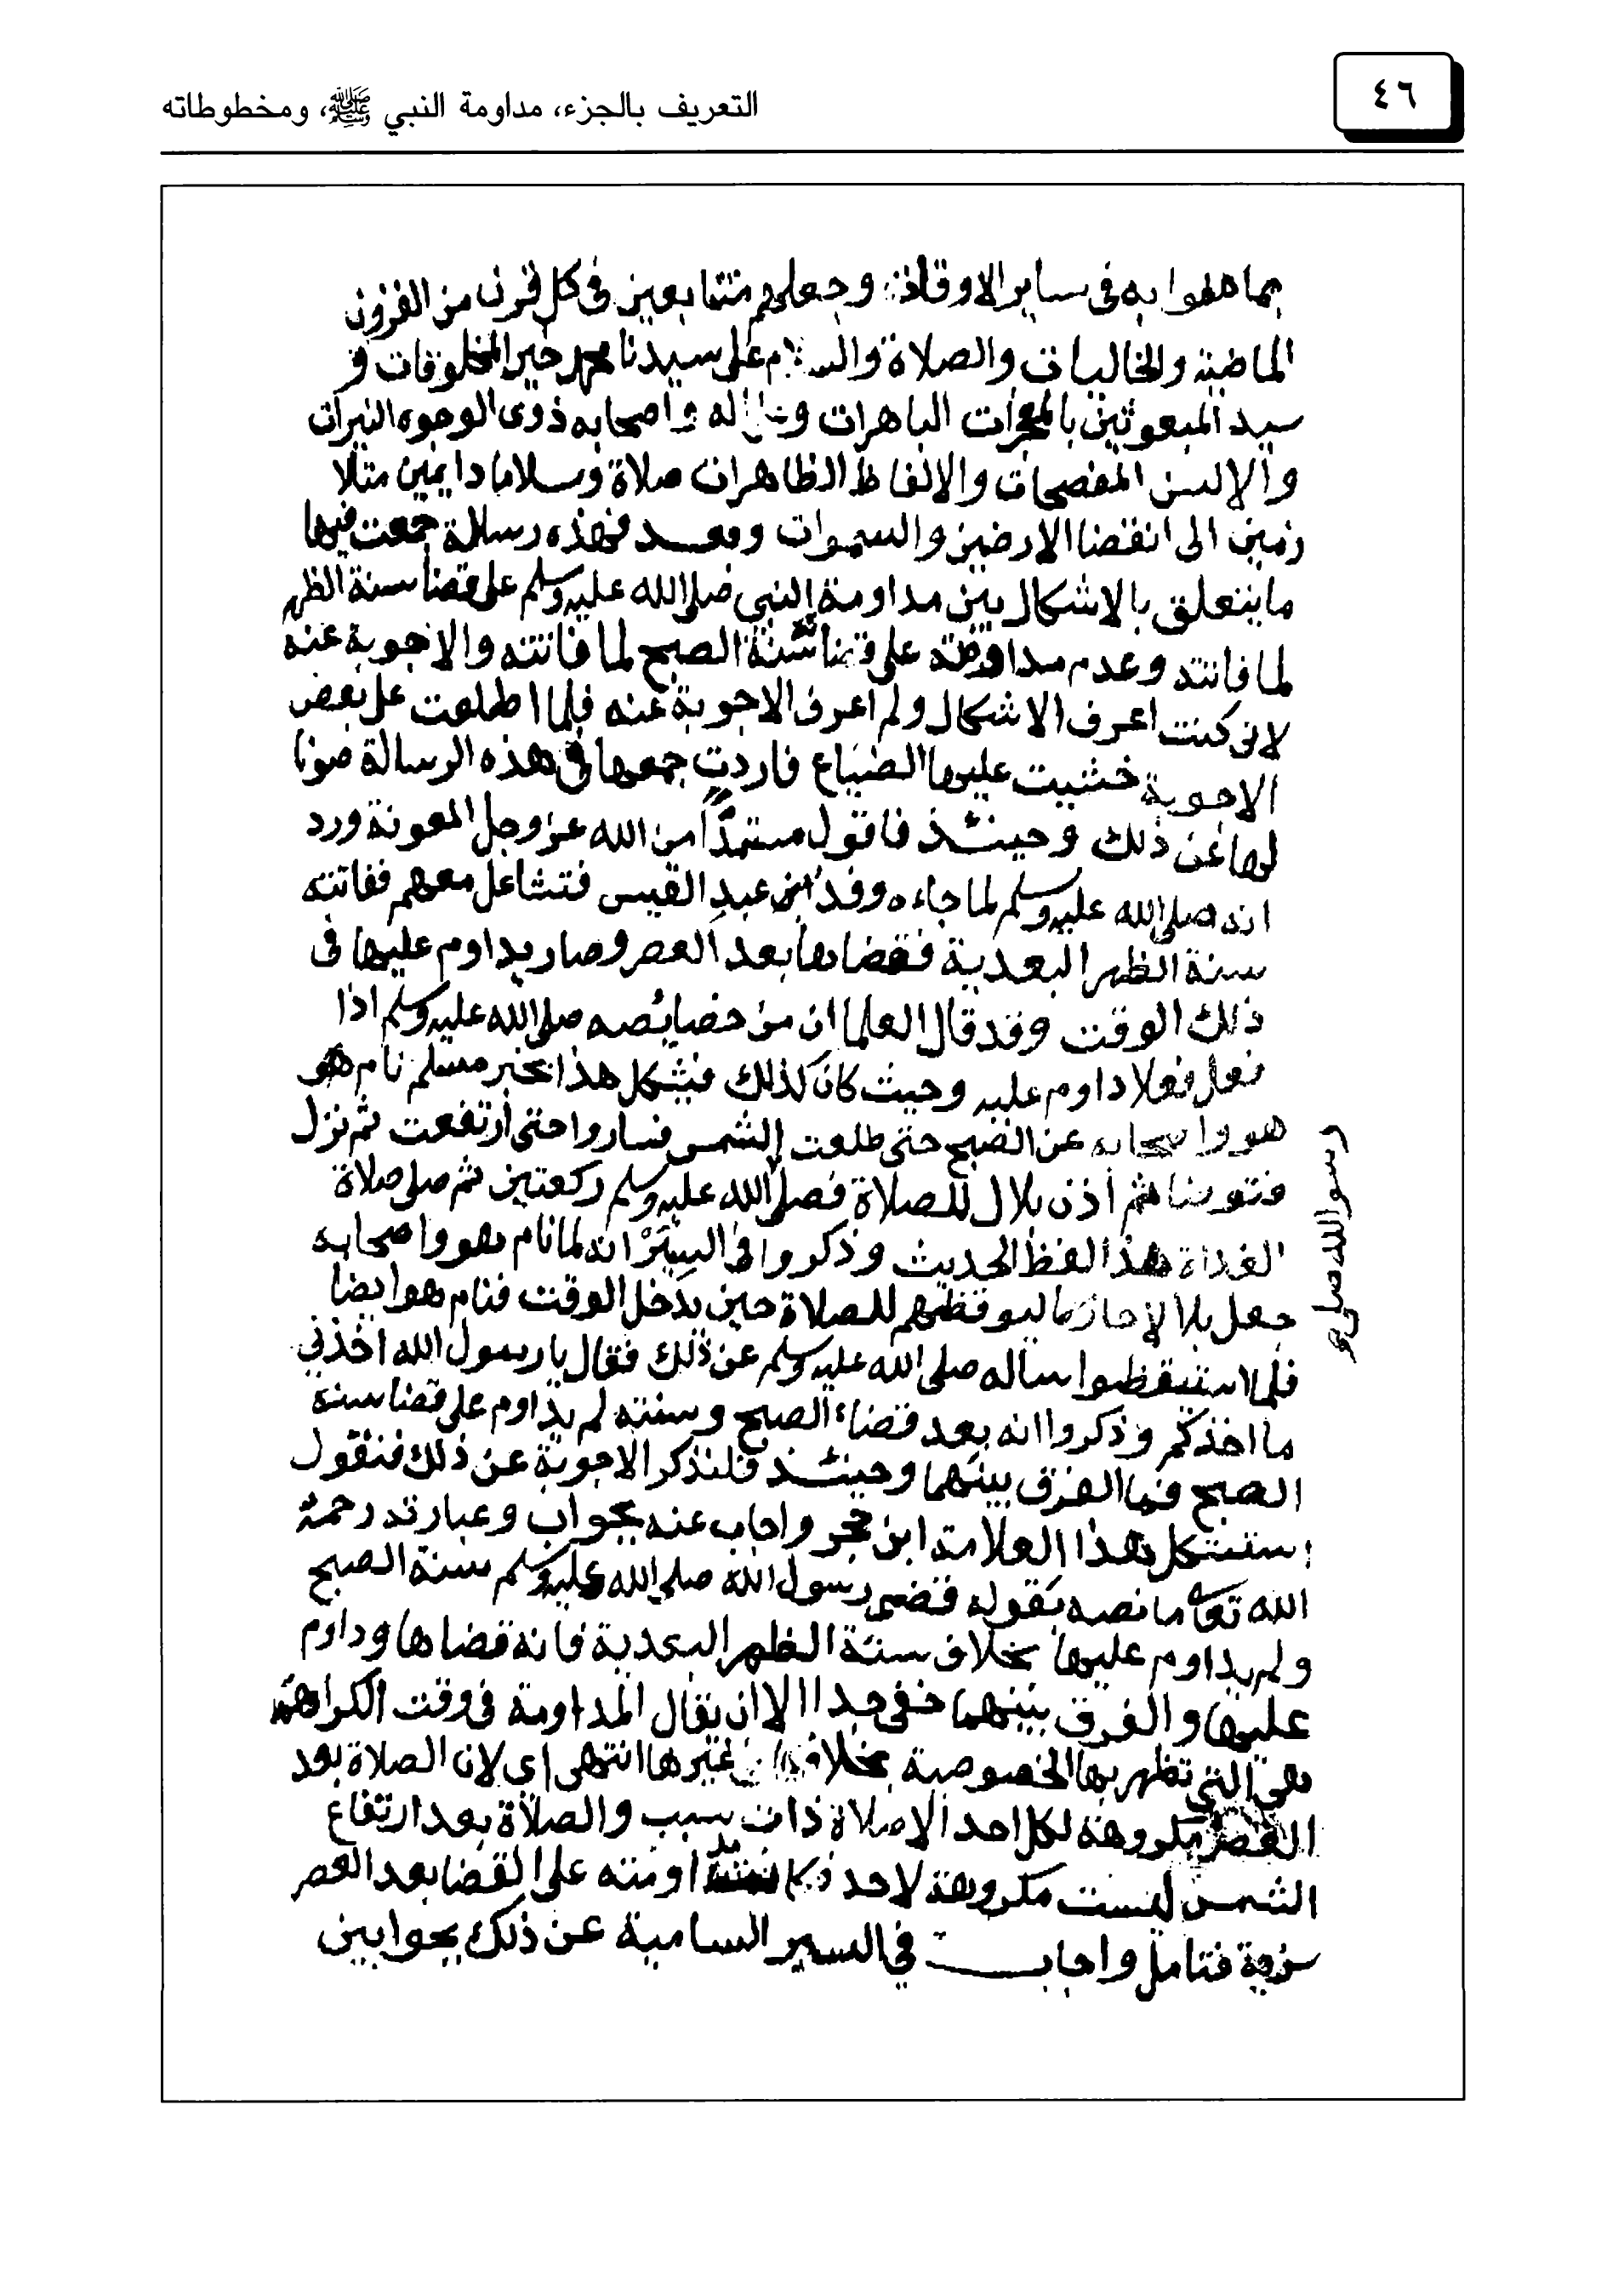 ٤٦
التعريف بالجزء، مداومة النبي ﷺ، ومخطوطاته
بما به فى ساير الاوقات وجعلهم متتابعين فى كل قرن من القرون
الماضية والخاليات والصلاة والسلام على سيدنا محمد خير المخلوقات و
سيد المبعوثين بالمعجزات الباهرات وعلى اله واصحابه ذوى الوجوه النيرات
والالسن المفصحات والالفاظ الظاهرات صلاة وسلاما دايمين متلا
زمين الى انقضا الارضين والسموات وبعد فهذه رسالة جمعت فيها
ما يتعلق بالاشكال بين مداومة النبى صلى الله عليه وسلم على قضا سنة الظهر
لما فاتته وعدم مداومته على قضا سنة الصبح لما فاتته والاجوبة عنه
لانى كنت اعرف الاشكال ولم اعرف الاجوبة عنه فلما اطلعت على بعض
الاجوبة خشيت عليها الضياع فاردت جمعها فى هذه الرسالة صونا
لها عن ذلك وحينئذ فاقول مستمدا من الله عز وجل المعونة ورد
انه صلى الله عليه وسلم لما جاءه وفد ابن عبد القيس فتشاغل معهم ففاتته
سنة الظهر البعدية فقضاها بعد العصر وصار يداوم عليها فى
ذلك الوقت وقد قال العلما ان من خصايصه صلى الله عليه وسلم اذا
فعل فعلا داوم عليه وحيث كان كذلك فيشكل هذا بخبر مسلم نام هو
هو واصحابه عن الصبح حتى طلعت الشمس فساروا حتى ارتفعت ثم نزل
فتوضا ثم اذن بلال للصلاة فصلى الله عليه وسلم ركعتين ثم صلى صلاة
رسول الله صلى
الغداة هذا لفظ الحديث وذكروا فى السير انه لما نام هو واصحابه
جعل بلالا حارسا ليوقظهم للصلاة حين يدخل الوقت فنام هو ايضا
فلما استيقظوا ساله صلى الله عليه وسلم عن ذلك فقال يا رسول الله اخذنى
ما اخذكم وذكروا انه بعد قضاء الصبح وسنته لم يداوم على قضا سنة
الصبح فما الفرق بينهما وحينئذ فلنذكر الاجوبة عن ذلك فنقول
استشكل هذا العلامة ابن حجر واجاب عنه بجواب وعبارته رحمة
الله تعالى ما نصه بقوله قضى رسول الله صلى الله عليه وسلم سنة الصبح
ولم يداوم عليها بخلاف سنة الظهر البعدية فانه قضاها وداوم
عليها والفرق بينهما خفى جدا الا ان يقال المداومة فى وقت الكراهة
هى التى تظهر بها الخصوصية بخلاف غيرها انتهى اى لان الصلاة بعد
العصر مكروهة لكل احد الا صلاة ذات سبب والصلاة بعد ارتفاع
الشمس ليست مكروهة لاحد مداومته على القضا بعد العصر
فتامل واجاب في السير السامية عن ذلك بجوابين